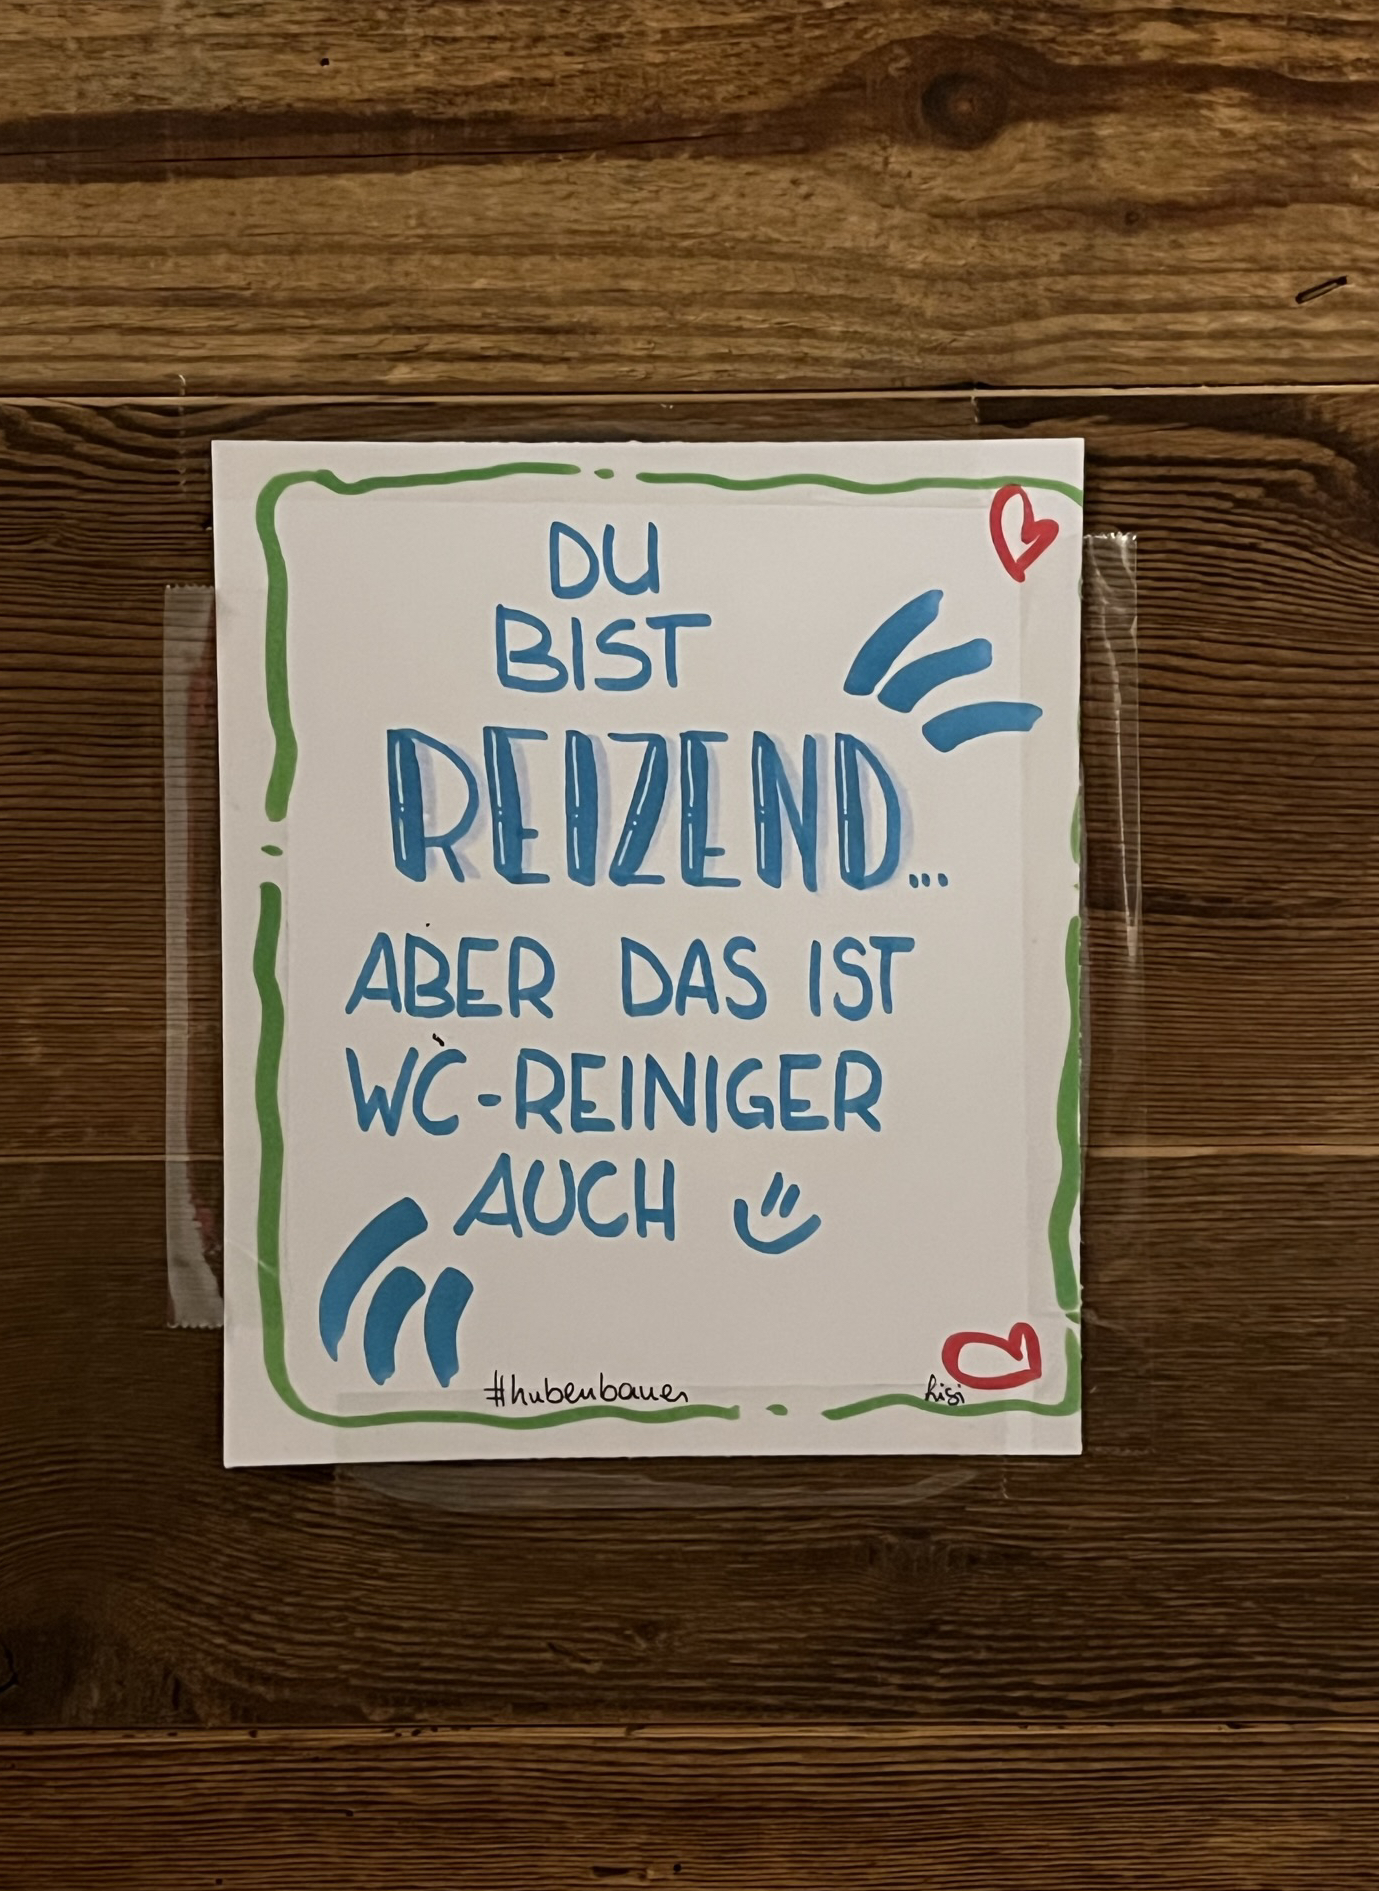 DU
BIST
REIZEND...
ABER DAS IST
WC-REINIGER
AUCH
#hubenbauer